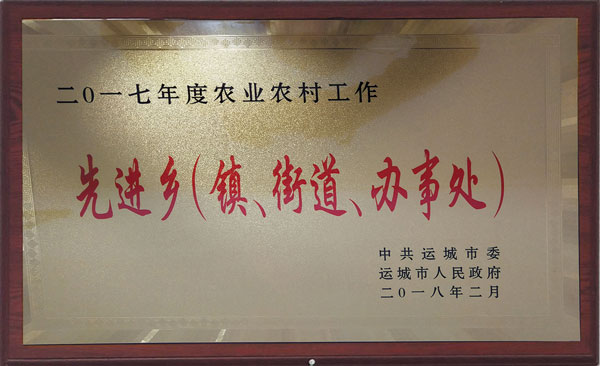 二〇一七年度农业农村工作
先进乡（镇、街道、办事处）
中共运城市委
运城市人民政府
二〇一八年二月